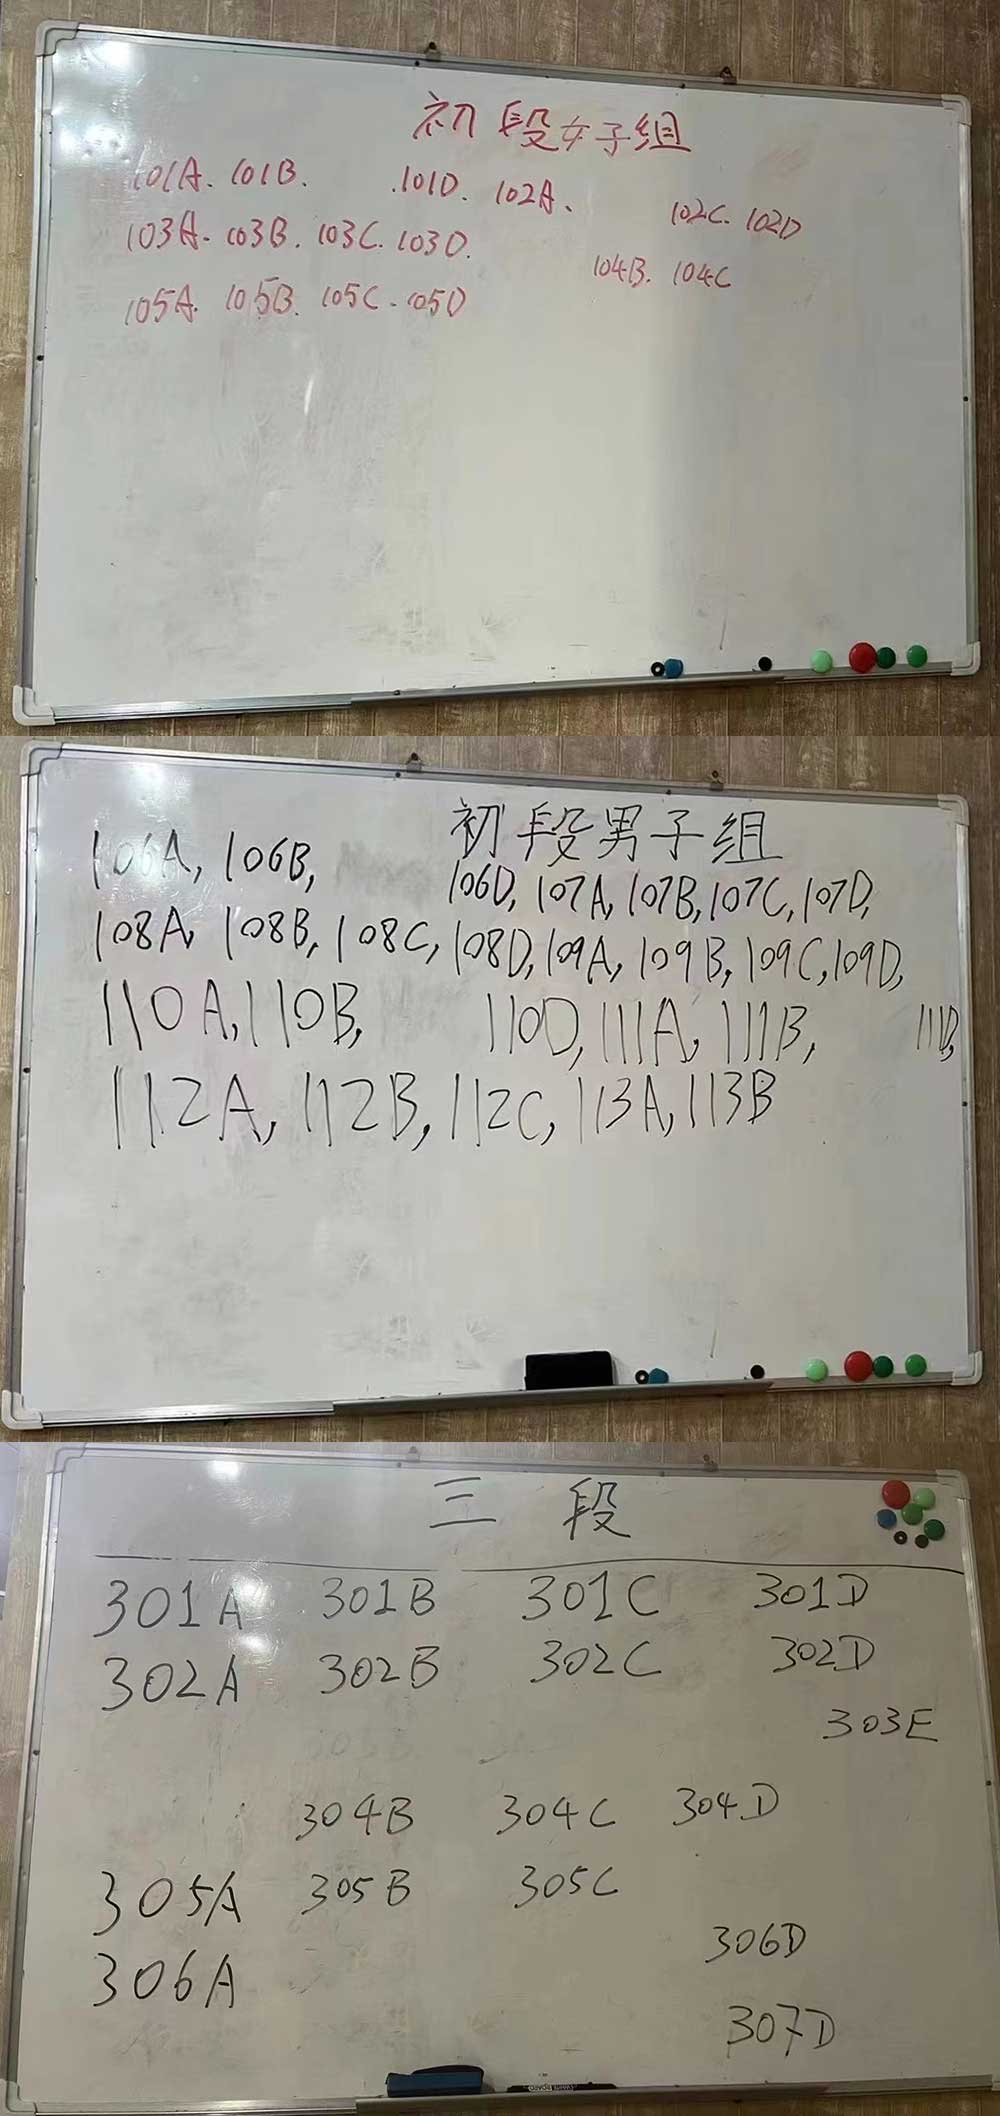 初段女子组
101A. 101B. .101D. 102A、 102C. 102D
103A. 103B. 103C. 103D.
104B. 104C
105A. 105B. 105C. 105D
初段男子组
106A, 106B, 106D, 107A, 107B, 107C, 107D,
108A, 108B, 108C, 108D, 109A, 109B, 109C, 109D,
110A, 110B, 110D, 111A, 111B, 111D,
112A, 112B, 112C, 113A, 113B
三 段
301A 301B 301C 301D
302A 302B 302C 302D
303E
304B 304C 304D
305A 305B 305C
306D
306A
307D